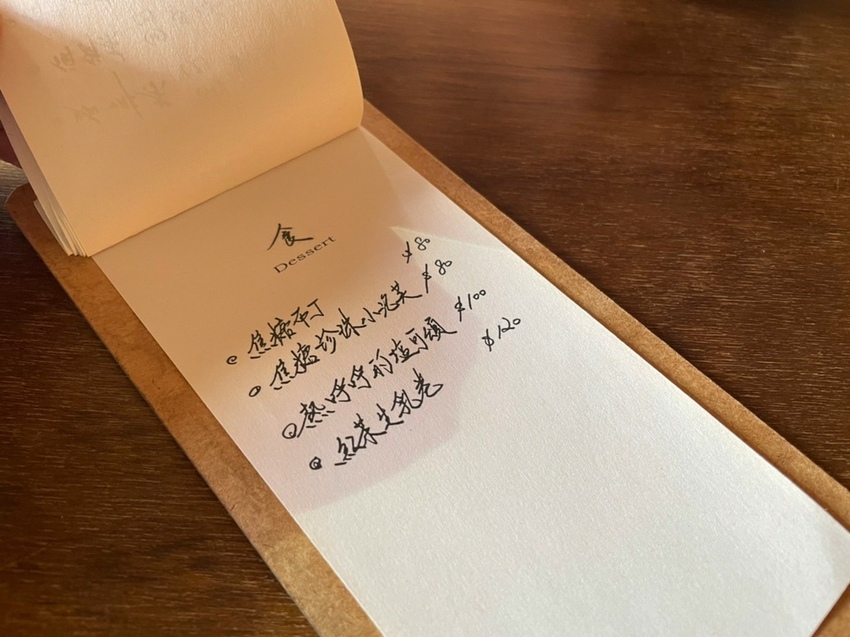 食
Dessert
焦糖布丁 $80
焦糖珍珠小泡芙 $80
熱呼呼的鹽可頌 $100
紅茶生乳卷 $120